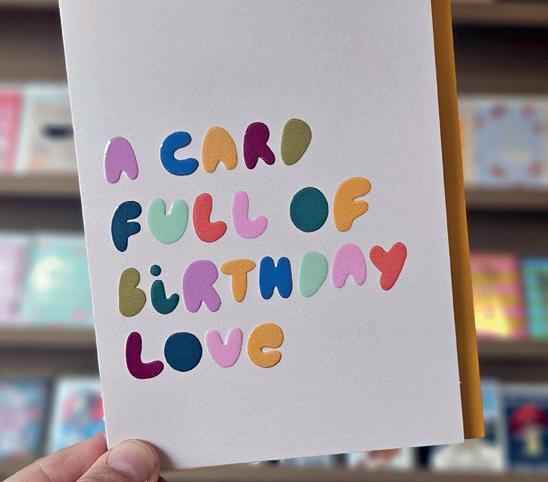 A CARD
FULL OF
BiRTHDAY
LOVE